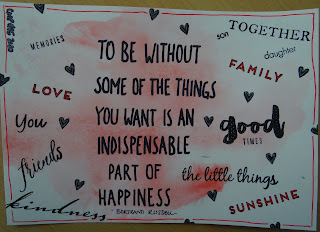 MEMORIES
TO BE WITHOUT
SOME OF THE THINGS
YOU WANT IS AN
INDISPENSABLE
PART OF
HAPPINESS
BERTRAND RUSSELL
son TOGETHER
daughter
FAMILY
LOVE
You
good
TIMES
friends
the little things
kindness
SUNSHINE